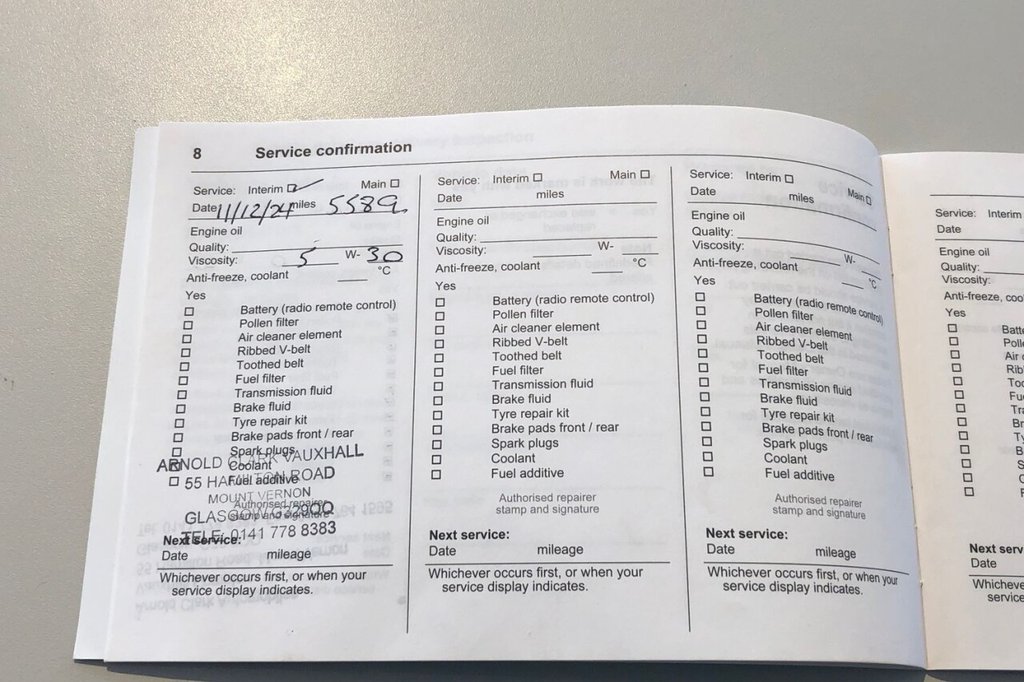 8 Service confirmation
Service: Interim Main
Date 11/12/24 miles 5589.
Engine oil
Quality:
Viscosity: 5 W- 30
Anti-freeze, coolant °C
Yes
Battery (radio remote control)
Pollen filter
Air cleaner element
Ribbed V-belt
Toothed belt
Fuel filter
Transmission fluid
Brake fluid
Tyre repair kit
Brake pads front / rear
Spark plugs
Coolant
Fuel additive
ARNOLD CLARK VAUXHALL
55 HAMILTON ROAD
MOUNT VERNON
Authorised repairer
stamp and signature
GLASGOW G32 9QQ
TELE: 0141 778 8383
Next service:
Date mileage
Whichever occurs first, or when your
service display indicates.
Service: Interim Main
Date miles
Engine oil
Quality:
Viscosity: W-
Anti-freeze, coolant °C
Yes
Battery (radio remote control)
Pollen filter
Air cleaner element
Ribbed V-belt
Toothed belt
Fuel filter
Transmission fluid
Brake fluid
Tyre repair kit
Brake pads front / rear
Spark plugs
Coolant
Fuel additive
Authorised repairer
stamp and signature
Next service:
Date mileage
Whichever occurs first, or when your
service display indicates.
Service: Interim Main
Date miles
Engine oil
Quality:
Viscosity: W-
Anti-freeze, coolant °C
Yes
Battery (radio remote control)
Pollen filter
Air cleaner element
Ribbed V-belt
Toothed belt
Fuel filter
Transmission fluid
Brake fluid
Tyre repair kit
Brake pads front / rear
Spark plugs
Coolant
Fuel additive
Authorised repairer
stamp and signature
Next service:
Date mileage
Whichever occurs first, or when your
service display indicates.
Service: Interim
Date
Engine oil
Quality:
Viscosity:
Anti-freeze, coo
Yes
Batte
Polle
Air c
Rib
Too
Fu
Tra
Br
Ty
Br
S
C
F
Next serv
Date
Whicheve
service